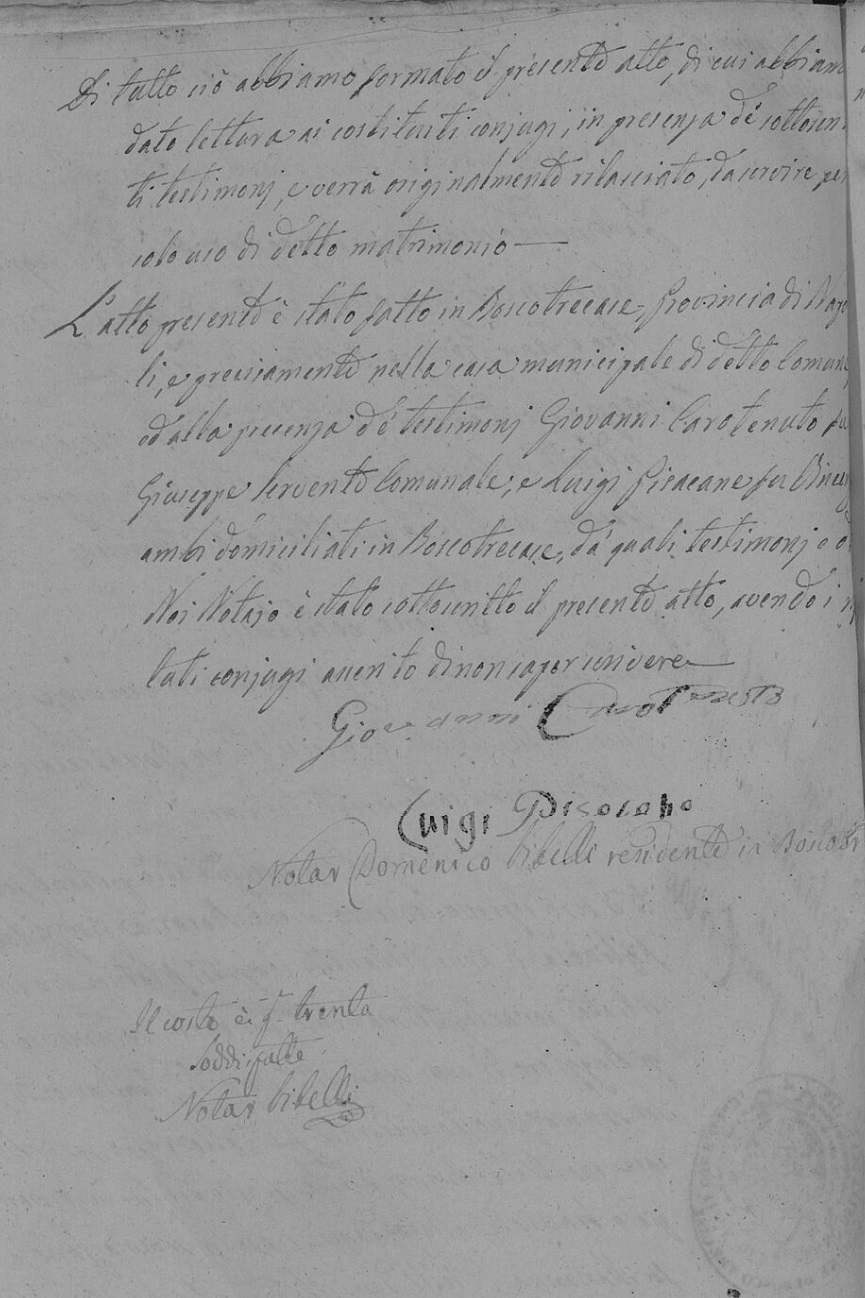 Di tutto ciò abbiamo formato il presente atto, di cui abbiam
dato lettura ai costituiti conjugi, in presenza de' sottoscri
ti testimonj, e verrà originalmente rilasciato, da servire pe
solo uso di detto matrimonio —
L'atto presente è stato fatto in Boscotrecase, Provincia di Napo
li, e precisamente nella casa municipale di detto Comune
ed alla presenza de' testimonj Giovanni Carotenuto fu
Giuseppe servente Comunale, e Luigi Pisacane fu Vince
ambi domiciliati in Boscotrecase, da' quali testimonj e
Noi Notajo è stato sottoscritto il presente atto, avendo i
tati conjugi asserito di non saper scrivere —
Giovanni Carotenuto
Luigi Pisacane
Notar Domenico residente in Boscotr
Il costo è trenta
Soddisfatte
Notar